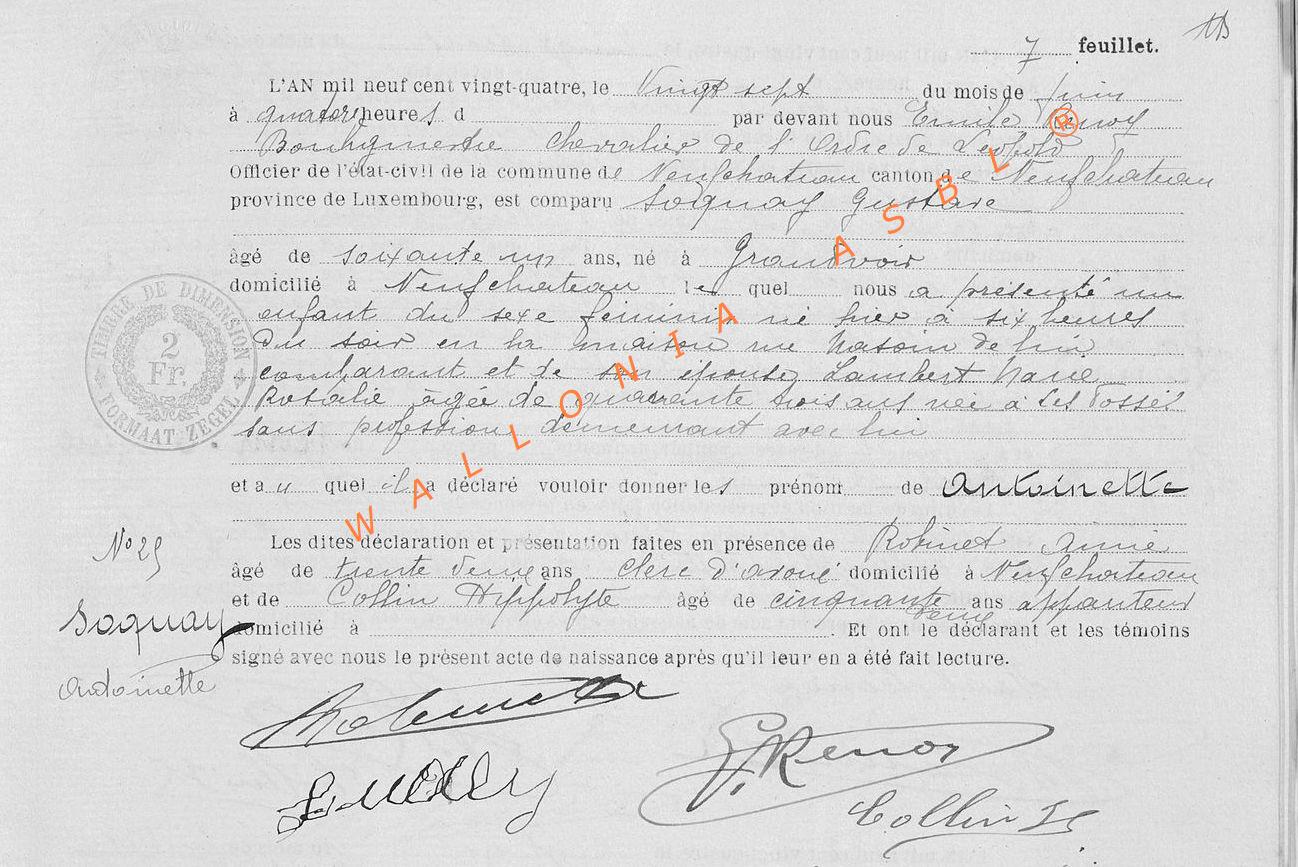 7 feuillet.
L'AN mil neuf cent vingt-quatre, le Vingt sept du mois de juin
à quatorze heures d par devant nous Emile Renoy
Bourgmestre Chevalier de l'Ordre de Léopold
Officier de l'état-civil de la commune de Neufchateau canton de Neufchateau
province de Luxembourg, est comparu Soquay Gustave
âgé de soixante un ans, né à Grandvoir
domicilié à Neufchateau lequel nous a présenté un
enfant du sexe féminin né hier à six heures
du soir en la maison de lui
comparant et de son épouse Lambert Marie
Rosalie âgée de quarante trois ans née à Les Fossés
sans profession demeurant avec lui
et au quel il a déclaré vouloir donner les prénom de Antoinette
Les dites déclaration et présentation faites en présence de Robinet
âgé de trente deux ans clerc d'avoué domicilié à Neufchateau
et de Collin Hippolyte âgé de cinquante deux ans appariteur
domicilié à . Et ont le déclarant et les témoins
signé avec nous le présent acte de naissance après qu'il leur en a été fait lecture.
No 25
Soquay
Antoinette
E. Renoy
Collin H
TIMBRE DE DIMENSION
2 Fr.
FORMAAT-ZEGEL
WALLONIA ASBL ®